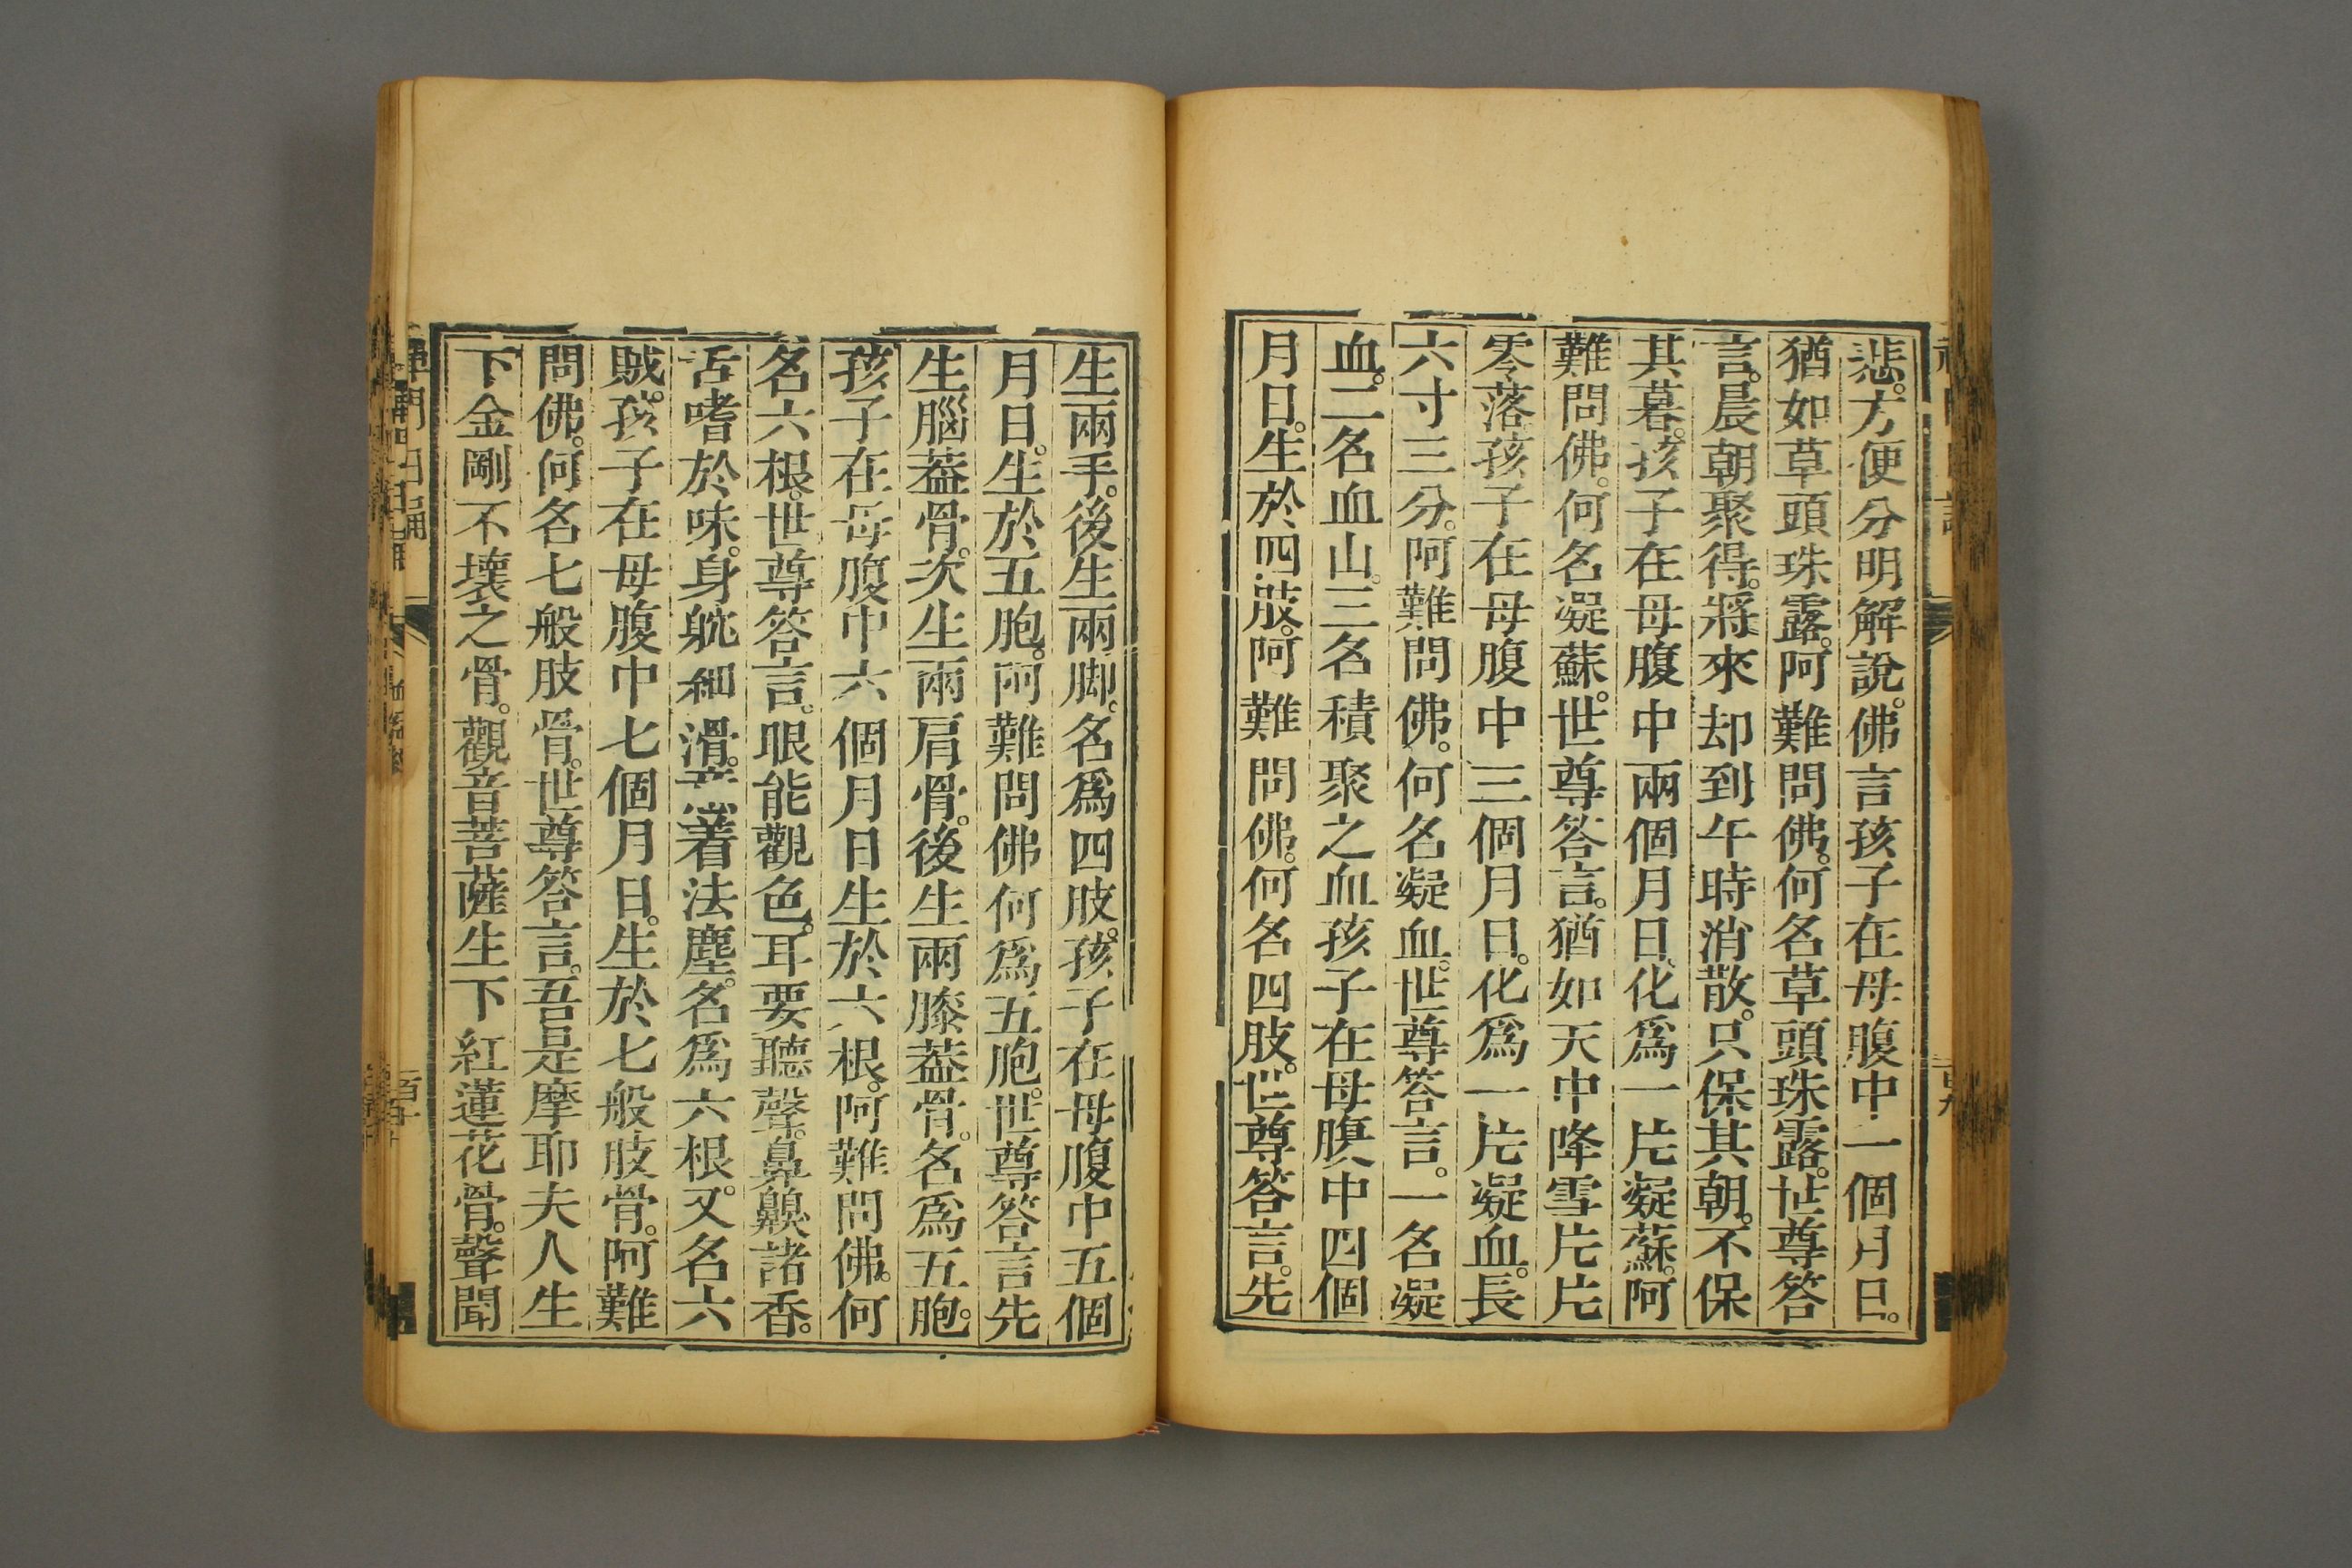 悲。方便分明解說。佛言孩子在母腹中一個月日。
猶如草頭珠露。阿難問佛。何名草頭珠露。世尊答
言。晨朝聚得。將來却到午時消散。只保其朝。不保
其暮。孩子在母腹中兩個月日。化爲一片凝蘇。阿
難問佛。何名凝蘇。世尊答言。猶如天中降雪片片
零落。孩子在母腹中三個月日。化爲一片凝血。長
六寸三分。阿難問佛。何名凝血。世尊答言。一名凝
血。二名血山。三名積聚之血。孩子在母腹中四個
月日。生於四肢。阿難問佛。何名四肢。世尊答言。先
生兩手。後生兩脚。名爲四肢。孩子在母腹中五個
月日。生於五胞。阿難問佛何爲五胞。世尊答言先
生腦葢骨。次生兩肩骨。後生兩膝葢骨。名爲五胞。
孩子在母腹中六個月日生於六根。阿難問佛。何
名六根。世尊答言。眼能觀色。耳要聽聲。鼻齅諸香。
舌嗜於味。身躭細滑。意着法塵。名爲六根。又名六
賊。孩子在母腹中七個月日。生於七般肢骨。阿難
問佛。何名七般肢骨。世尊答言。吾是摩耶夫人生
下金剛不壞之骨。觀音菩薩生下紅蓮花骨。聲聞
禪門日誦
百十